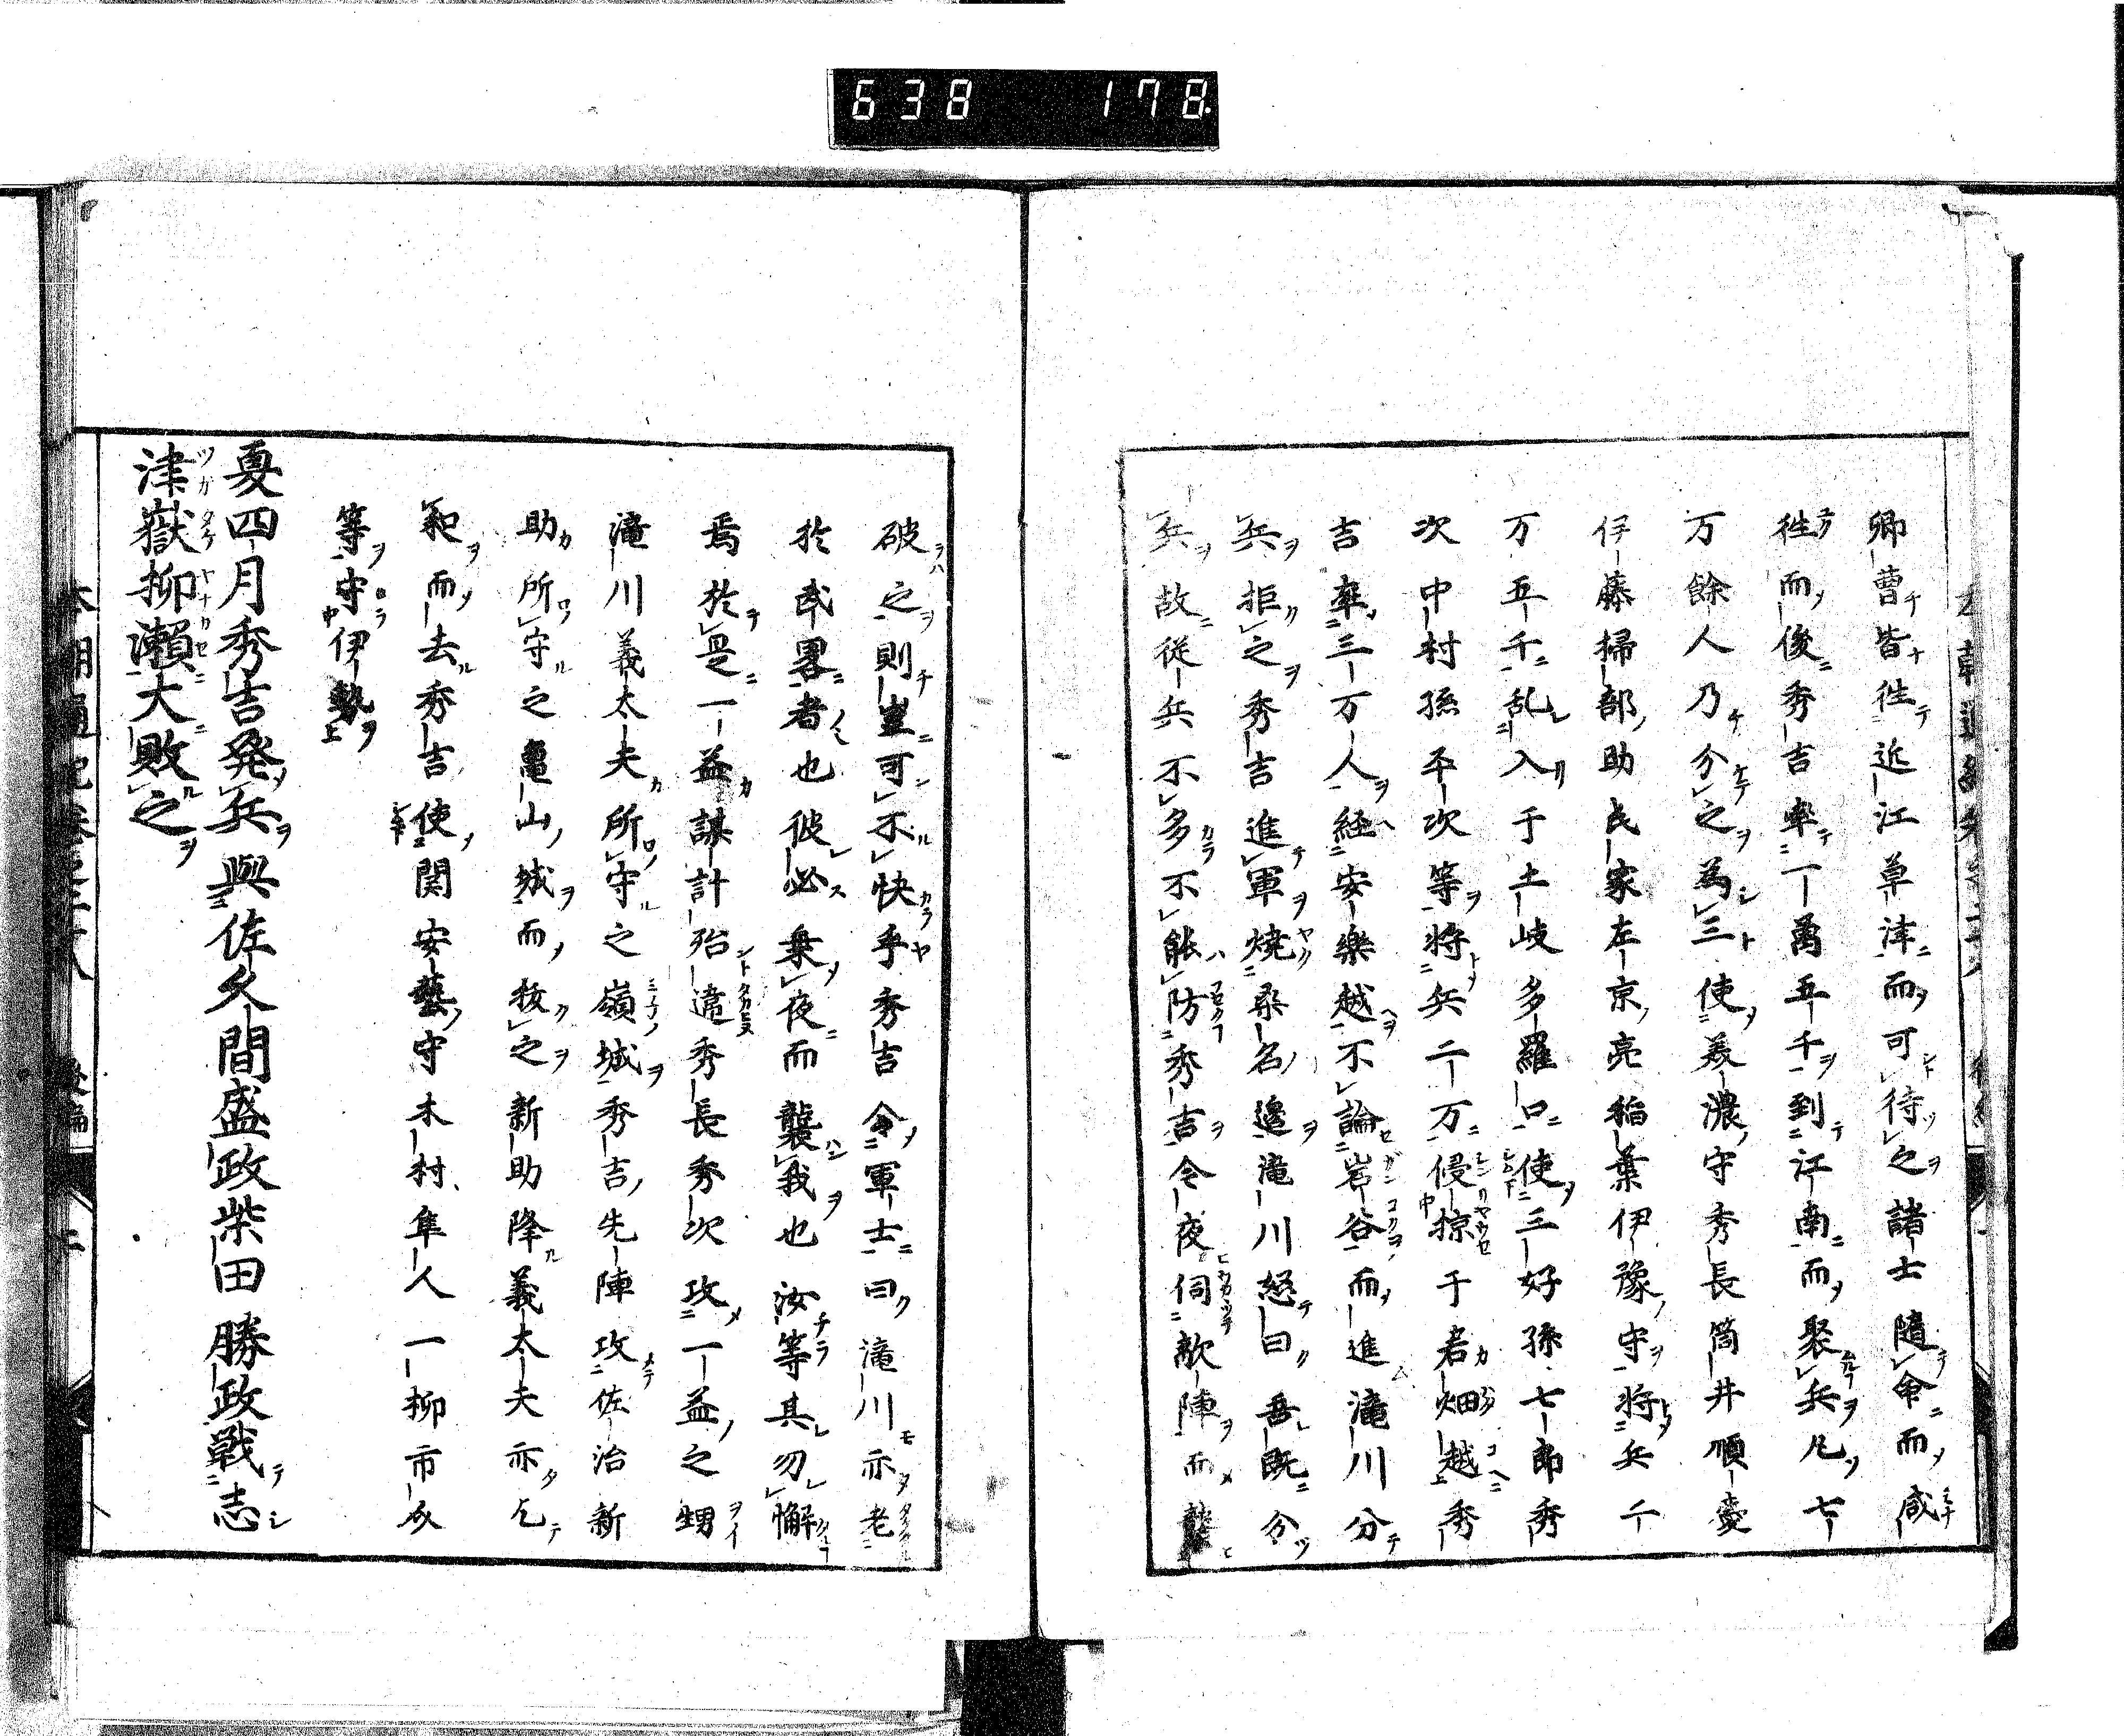 638 178.
卿曹皆徃近江草津而可待之諸士隨命而咸
徃而後秀吉率一萬五千到江南而聚兵凡七
万餘人乃分之為三使美濃守秀長筒井順慶
伊藤掃部助氏家左京亮稲葉伊豫守将兵二
万五千乱入于土岐多羅口使三好孫七郎秀
次中村孫平次等将兵二万侵掠于君畑越秀
吉率三万人経安樂越不論岩谷而進滝川分
兵拒之秀吉進軍焼桑名邉滝川怒曰吾既分
兵故従兵不多不能防秀吉今夜伺敵陣而襲
破之則豈可不快乎秀吉令軍士曰滝川亦老
於武畧者也彼必乗夜而襲我也汝等其勿懈
焉於是一益謀計殆違秀長秀次攻一益之甥
滝川義太夫所守之嶺城秀吉先陣攻佐治新
助所守之亀山城而抜之新助降義太夫亦乞
和而去秀吉使関安藝守木村隼人一柳市介
等守伊勢
夏四月秀吉発兵與佐久間盛政柴田勝政戦志
津嶽柳瀬大敗之